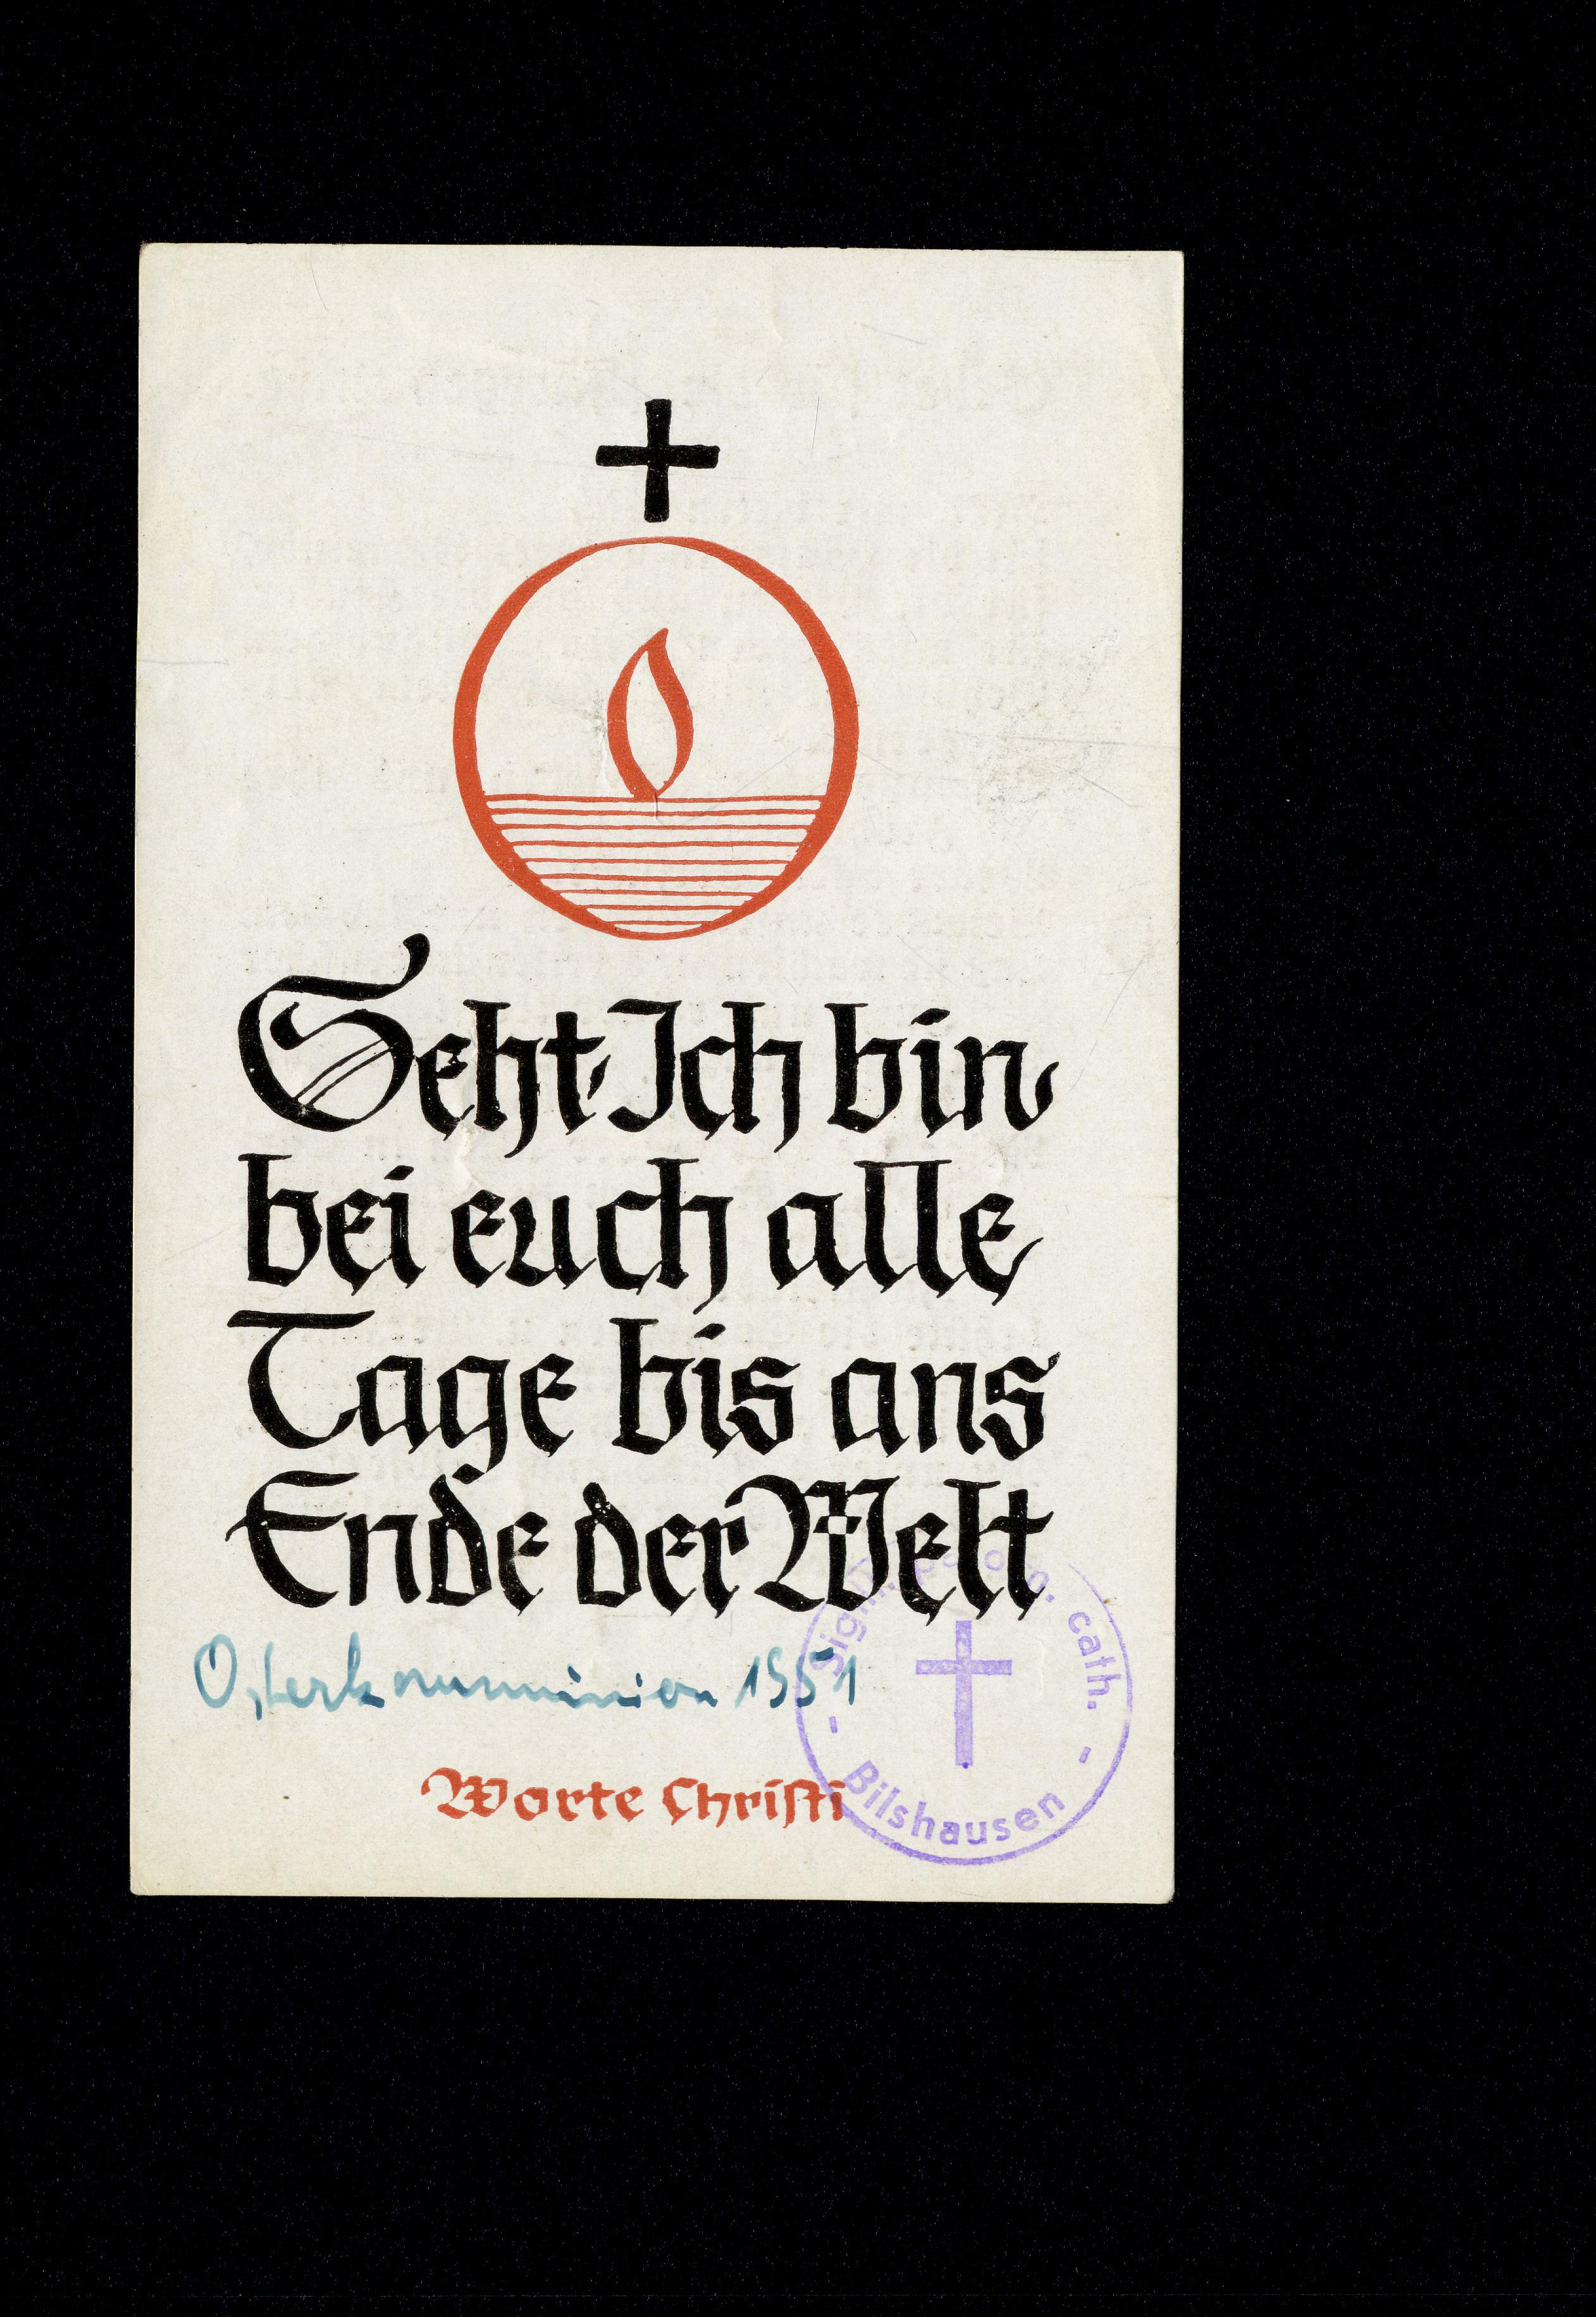 Seht, Ich bin
bei euch alle
Tage bis ans
Ende der Welt
Osterkommunion 1951
Worte Christi
cath.
- Bilshausen -